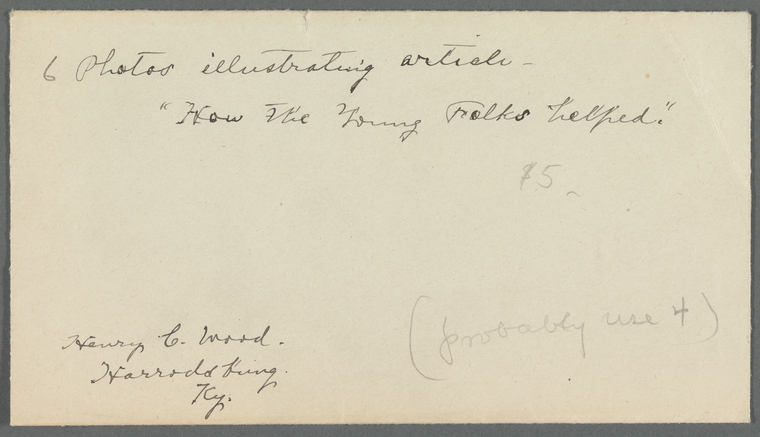 6 Photos illustrating article -
"How the Young Folks helped."
$5 -
(probably use 4)
Henry C. Wood.
Harrodsburg.
Ky.